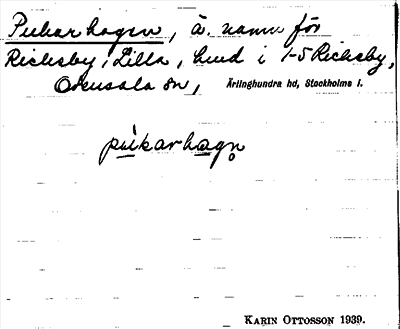 Pukarhagen, ä. namn för
Ricksby, Lilla, hmd i 1-5 Ricksby,
Orkesta sn, Ärlinghundra hd, Stockholms l.
pukarhagn̥
KARIN OTTOSSON 1939.